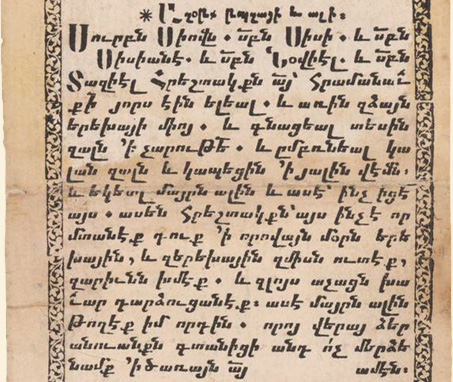 ✻ Աղօթք թպղայի և ալի :
Սուրբն Սիովն . սբն Սիսի . և սբն
Սիսիանէ . և սբն Նօվիէլ . և սբն
Տազիէլ Հրեշտակքն այ՝ Հրամանաւ
քի յորս էին ելեալ . և առին զձայն
երեխայի միոյ . և գնացեալ տեսին
զալն ՚ի չարութե . և ըմբռնեալ կա
լան զալն և կապեցին ՚ի յալին վէմն .
և եկեալ մայրն ալին և ասէ՝ ինչ իցէ
այս . ասեն Հրեշտակքն՝ այս ինչ է որ
մտանէք դուք ՚ի որովայն մօրն երե
խային , և զերեխային զմիսն ուտէք ,
զարիւնն խմէք . և զլոյս աչացն խա
ւար դարձուցանէք : ասէ մայրն ալին
Թողէք իմ որդին . որոյ վերայ ձեր
անուանքն գտանիցի անդ ոչ մերձե
նամք ՚ի ծառայն այ ամէն :